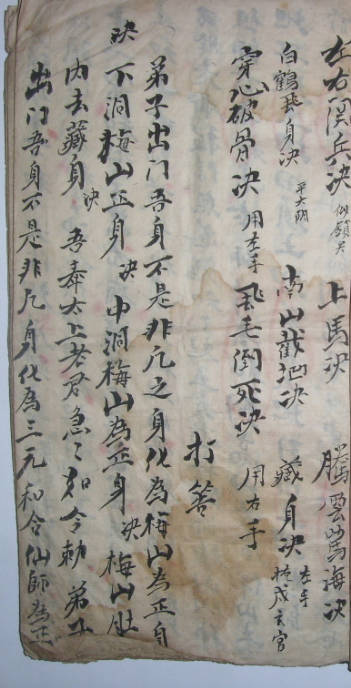 左右陰兵決 上馬決 騰雲駕海決
白鶴身決 南山截池決 藏身決 左手
穿心破骨決 用左手 倒死決 用右手
打答
弟子出门吾身不是非凡之身化為梅山為正身
决 下洞梅山正身 决 中洞梅山為正身 决 梅山肚
内去藏身 决 吾奉太上老君急々如令勅 弟子
出门吾身不是非凡身化為三元和合仙師為正